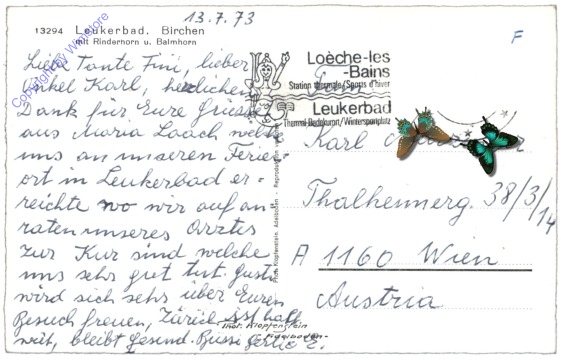 13.7.73
13294 Leukerbad. Birchen
mit Rinderhorn u. Balmhorn
Liebe Tante Fini, lieber
Onkel Karl, herzlichen
Dank für Eure Grüsse
aus Maria Laach welche
uns an unseren Ferien-
ort in Leukerbad er-
reichte wo wir auf an-
raten unseres Arztes
zur Kur sind welche
uns sehr gut tut. Gusti
wird sich sehr über Euren
Besuch freuen, Zürich ist halt
weit, bleibt gesund. Bussi
Copyright by Wimstore
Phot. Klopfenstein
Adelboden
Phot. Klopfenstein, Adelboden - Reproduction
Loèche-les
-Bains
Station thermale/Sports d'hiver
Leukerbad
Thermal-Badekurort/Wintersportplatz
F
Karl
Thalheimerg. 38/3/14
A 1160 Wien
Austria